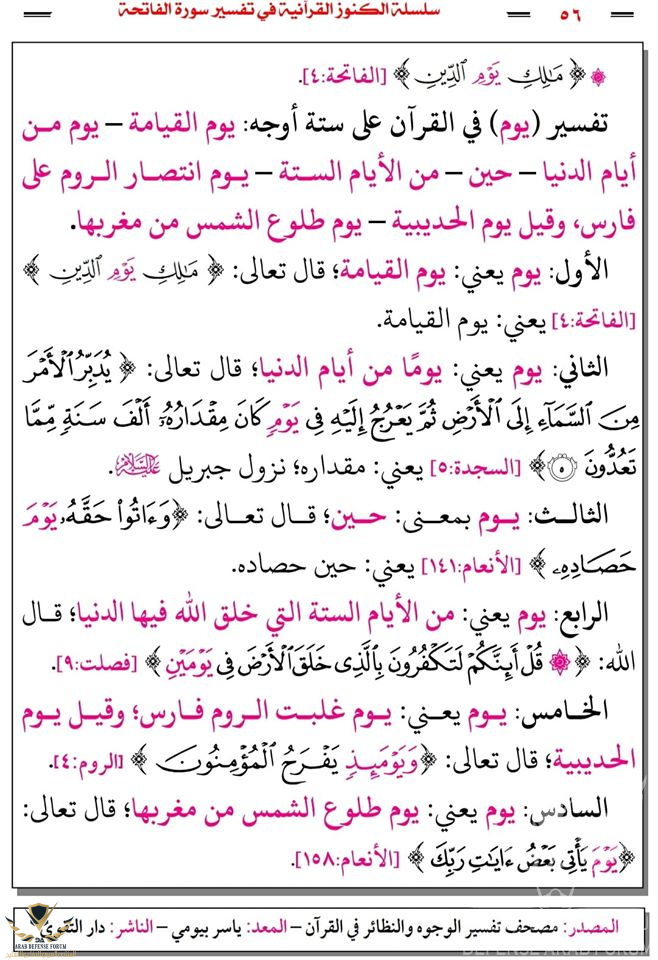 ٥٦ سلسلة الكنوز القرآنية في تفسير سورة الفاتحة
﴿ مَـٰلِكِ يَوْمِ الدِّينِ ﴾ [الفاتحة:٤].
تفسير (يوم) في القرآن على ستة أوجه: يوم القيامة – يوم من
أيام الدنيا – حين – من الأيام الستة – يوم انتصار الروم على
فارس، وقيل يوم الحديبية – يوم طلوع الشمس من مغربها.
الأول: يوم يعني: يوم القيامة؛ قال تعالى: ﴿ مَـٰلِكِ يَوْمِ الدِّينِ ﴾
[الفاتحة:٤] يعني: يوم القيامة.
الثاني: يوم يعني: يومًا من أيام الدنيا؛ قال تعالى: ﴿ يُدَبِّرُ ٱلْأَمْرَ
مِنَ ٱلسَّمَآءِ إِلَى ٱلْأَرْضِ ثُمَّ يَعْرُجُ إِلَيْهِ فِى يَوْمٍ كَانَ مِقْدَارُهُۥٓ أَلْفَ سَنَةٍ مِّمَّا
تَعُدُّونَ ٥ ﴾ [السجدة:٥] يعني: مقداره؛ نزول جبريل عليه السلام.
الثالث: يوم بمعنى: حين؛ قال تعالى: ﴿وَءَاتُوا۟ حَقَّهُۥ يَوْمَ
حَصَادِهِۦ ﴾ [الأنعام:١٤١] يعني: حين حصاده.
الرابع: يوم يعني: من الأيام الستة التي خلق الله فيها الدنيا؛ قال
الله: ﴿ ۞ قُلْ أَئِنَّكُمْ لَتَكْفُرُونَ بِٱلَّذِى خَلَقَ ٱلْأَرْضَ فِى يَوْمَيْنِ ﴾ [فصلت:٩].
الخامس: يوم يعني: يوم غلبت الروم فارس؛ وقيل يوم
الحديبية؛ قال تعالى: ﴿وَيَوْمَئِذٍ يَفْرَحُ ٱلْمُؤْمِنُونَ ﴾ [الروم:٤].
السادس: يوم يعني: يوم طلوع الشمس من مغربها؛ قال تعالى:
﴿يَوْمَ يَأْتِى بَعْضُ ءَايَـٰتِ رَبِّكَ ﴾ [الأنعام:١٥٨].
المصدر: مصحف تفسير الوجوه والنظائر في القرآن – المعد: ياسر بيومي – الناشر: دار التقوى
ARAB DEFENSE FORUM
DEFENSE ARAB FORUM